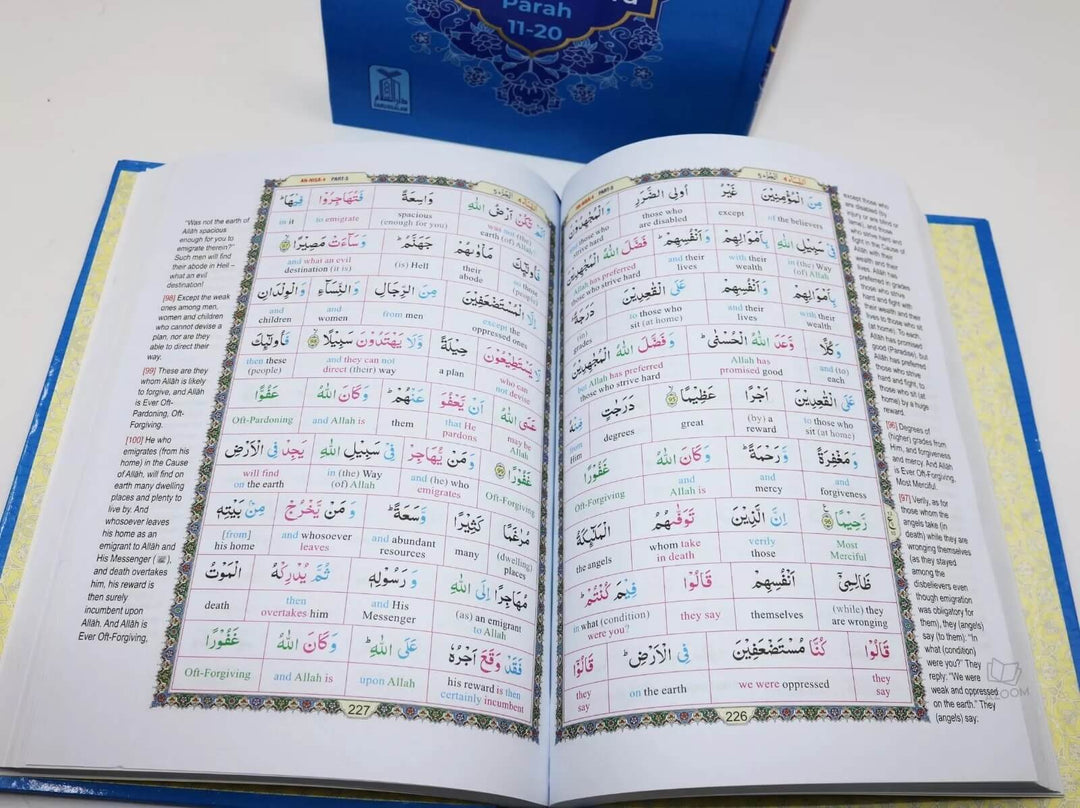 Parah
11-20
دار السلام
DARUSSALAM
AN-NISA-4 PART-5
النساء ٤
مِنَ الْمُؤْمِنِيْنَ غَيْرُ اُولِى الضَّرَرِ وَ الْمُجٰهِدُوْنَ
of the believers
except
those who are disabled
and those who strive hard
فِيْ سَبِيْلِ اللّٰهِ بِاَمْوَالِهِمْ وَ اَنْفُسِهِمْ ؕ فَضَّلَ اللّٰهُ الْمُجٰهِدِيْنَ
in (the) Way (of) Allah
with their wealth
and their lives
Allah has preferred those who strive hard
بِاَمْوَالِهِمْ وَ اَنْفُسِهِمْ عَلَى الْقٰعِدِيْنَ دَرَجَةً ؕ
with their wealth
and their lives
to those who sit (at home)
grades
وَ كُلًّا وَّعَدَ اللّٰهُ الْحُسْنٰى ؕ وَ فَضَّلَ اللّٰهُ الْمُجٰهِدِيْنَ
and (to) each
Allah has promised good
but Allah has preferred those who strive hard
عَلَى الْقٰعِدِيْنَ اَجْرًا عَظِيْمًا ۙ دَرَجٰتٍ مِّنْهُ
to those who sit (at home)
(by) a reward
great
degrees
from Him
وَ مَغْفِرَةً وَّ رَحْمَةً ؕ وَ كَانَ اللّٰهُ غَفُوْرًا
and forgiveness
and mercy
and Allah is
Oft-Forgiving
رَّحِيْمًا اِنَّ الَّذِيْنَ تَوَفّٰىهُمُ الْمَلٰٓئِكَةُ
Most Merciful
verily those
whom take in death
the angels
ظَالِمِيْٓ اَنْفُسِهِمْ قَالُوْا فِيْمَ كُنْتُمْ ؕ
(while) they are wronging
themselves
they say
in what (condition) were you?
قَالُوْا كُنَّا مُسْتَضْعَفِيْنَ فِى الْاَرْضِ ؕ قَالُوْٓا
they say
we were oppressed
on the earth
they say
226
except those who
are disabled (by
injury or are
blind or lame), and those
who strive hard
and fight in the Cause
of Allâh with
their wealth and
their lives. Allâh
has preferred
in grades
those who strive
hard and fight with
their wealth and
their lives to those who sit
(at home). To each,
Allâh has promised
good (Paradise), but
Allâh has preferred
those who strive
hard and fight, to
those who sit (at
home) by a huge
reward.
[96] Degrees of
(higher) grades from
Him, and forgiveness
and mercy. And Allâh
is Ever Oft-Forgiving,
Most Merciful.
[97] Verily, as for
those whom the
angels take (in
death) while they are
wronging themselves
(as they stayed
among the
disbelievers even
though emigration
was obligatory for
them), they (angels)
say (to them): "In
what (condition)
were you?" They
reply: "We were
weak and oppressed
on the earth." They
(angels) say:
AN-NISA-4 PART-5
النساء ٤
اَلَمْ تَكُنْ اَرْضُ اللّٰهِ وَاسِعَةً فَتُهَاجِرُوْا فِيْهَا ؕ
was not (the) earth (of) Allah
spacious (enough for you)
to emigrate
in it
فَاُولٰٓئِكَ مَاْوٰىهُمْ جَهَنَّمُ ؕ وَ سَآءَتْ مَصِيْرًا
so those (people)
their abode
(is) Hell
and what an evil destination (it is)
اِلَّا الْمُسْتَضْعَفِيْنَ مِنَ الرِّجَالِ وَ النِّسَآءِ وَ الْوِلْدَانِ
except the oppressed ones
from men
and women
and children
لَا يَسْتَطِيْعُوْنَ حِيْلَةً وَّ لَا يَهْتَدُوْنَ سَبِيْلًا فَاُولٰٓئِكَ
who can not devise
a plan
and they can not direct (their) way
then these (people)
عَسَى اللّٰهُ اَنْ يَّعْفُوَ عَنْهُمْ ؕ وَ كَانَ اللّٰهُ عَفُوًّا
may be Allah
that He pardons
them
and Allah is
Oft-Pardoning
غَفُوْرًا وَ مَنْ يُّهَاجِرْ فِيْ سَبِيْلِ اللّٰهِ يَجِدْ فِى الْاَرْضِ
Oft-Forgiving
and (he) who emigrates
in (the) Way (of) Allah
will find on the earth
مُرٰغَمًا كَثِيْرًا وَّ سَعَةً ؕ وَ مَنْ يَّخْرُجْ مِنْۢ بَيْتِهٖ
(dwelling) places
many
and abundant resources
and whosoever leaves
[from] his home
مُهَاجِرًا اِلَى اللّٰهِ وَ رَسُوْلِهٖ ثُمَّ يُدْرِكْهُ الْمَوْتُ
(as) an emigrant to Allah
and His Messenger
then overtakes him
death
فَقَدْ وَقَعَ اَجْرُهٗ عَلَى اللّٰهِ ؕ وَ كَانَ اللّٰهُ غَفُوْرًا
his reward is then certainly incumbent
upon Allah
and Allah is
Oft-Forgiving
227
"Was not the earth of
Allâh spacious
enough for you to
emigrate therein?"
Such men will find
their abode in Hell –
what an evil
destination!
[98] Except the weak
ones among men,
women and children
who cannot devise a
plan, nor are they
able to direct their
way.
[99] These are they
whom Allâh is likely
to forgive, and Allâh
is Ever Oft-
Pardoning, Oft-
Forgiving.
[100] He who
emigrates (from his
home) in the Cause
of Allâh, will find on
earth many dwelling
places and plenty to
live by. And
whosoever leaves
his home as an
emigrant to Allâh and
His Messenger (ﷺ),
and death overtakes
him, his reward is
then surely
incumbent upon
Allâh. And Allâh is
Ever Oft-Forgiving,